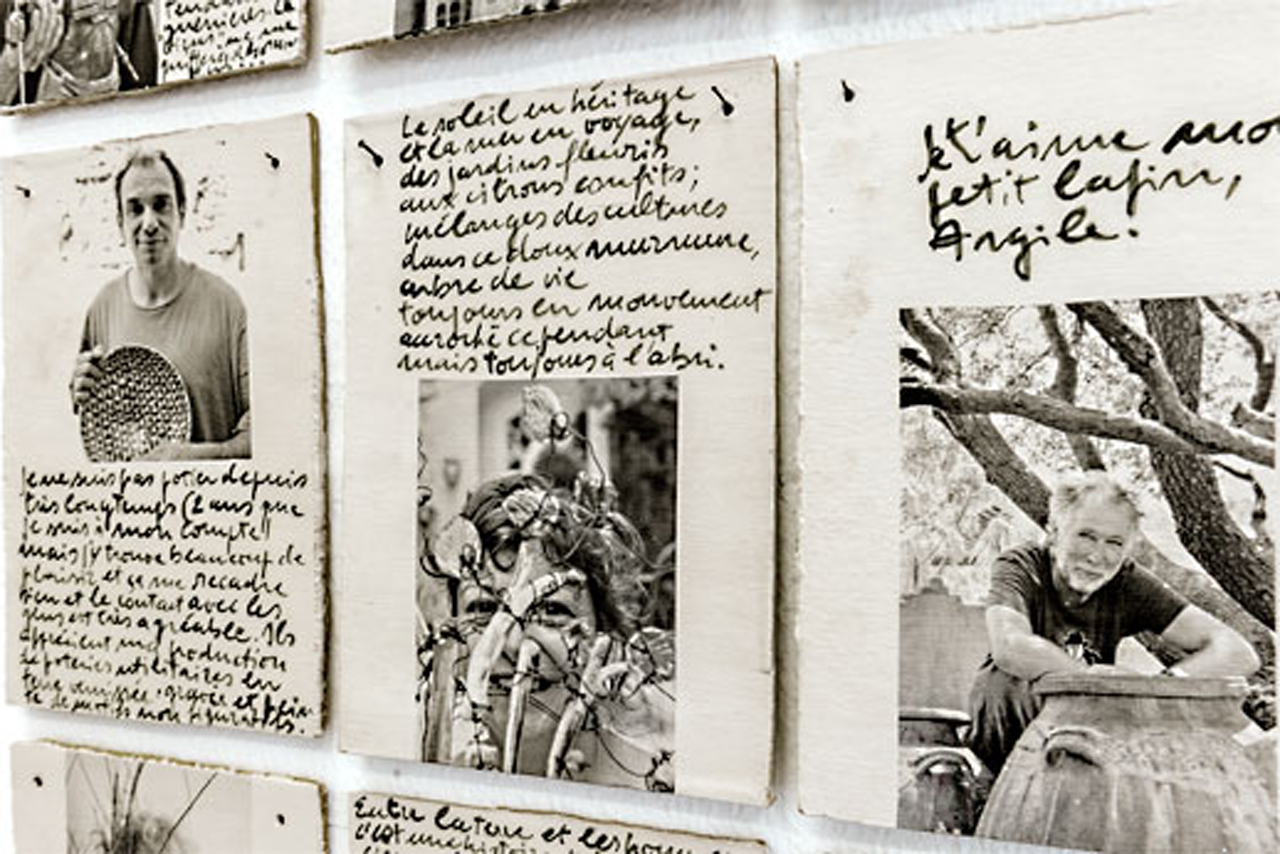 guerrières ce
Je ne suis pas potier depuis
très longtemps (2 ans que
je suis à mon compte)
mais j'y trouve beaucoup de
plaisir et ça me recadre
bien et le contact avec les
gens est très agréable. Ils
apprécient ma production
de poteries utilitaires en
terre vernissée gravée et pein
te de motifs non figuratifs.
Le soleil en héritage
et la mer en voyage,
des jardins fleuris
aux citrons confits;
mélanges des cultures
dans ce doux murmure,
arbre de vie
toujours en mouvement
accroché cependant
mais toujours à l'abri.
Je t'aime mo
petit lapin,
Argile.
Entre la terre et les hommes
c'est une histoire